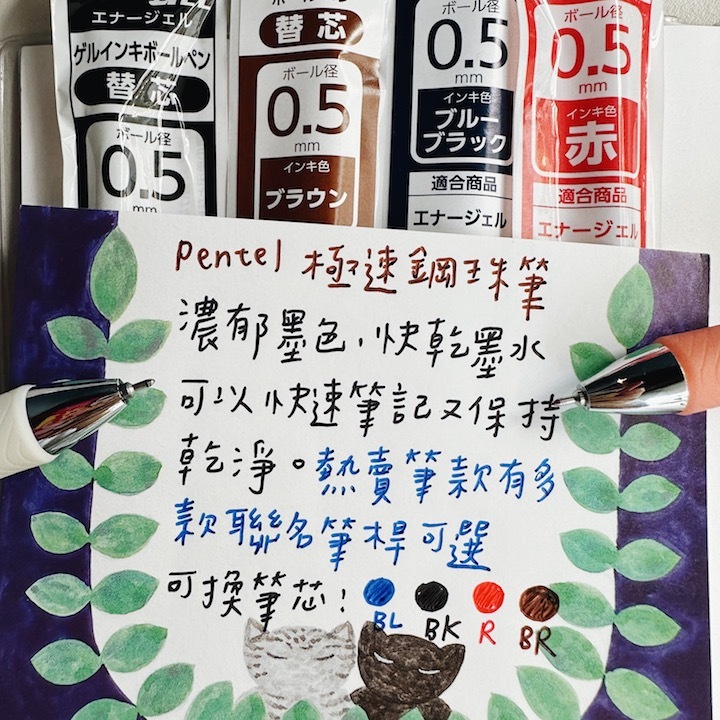 エナージェル
ゲルインキボールペン
替芯
ボール径
0.5
mm
ボールペン
替芯
ボール径
0.5
mm
インキ色
ブラウン
0.5
mm
インキ色
ブルー
ブラック
適合商品
エナージェル
ボール径
0.5
mm
インキ色
赤
適合商品
エナージェル
Pentel 極速鋼珠筆
濃郁墨色,快乾墨水
可以快速筆記又保持
乾淨。熱賣筆款有多
款聯名筆桿可選
可換筆芯!
BL BK R BR